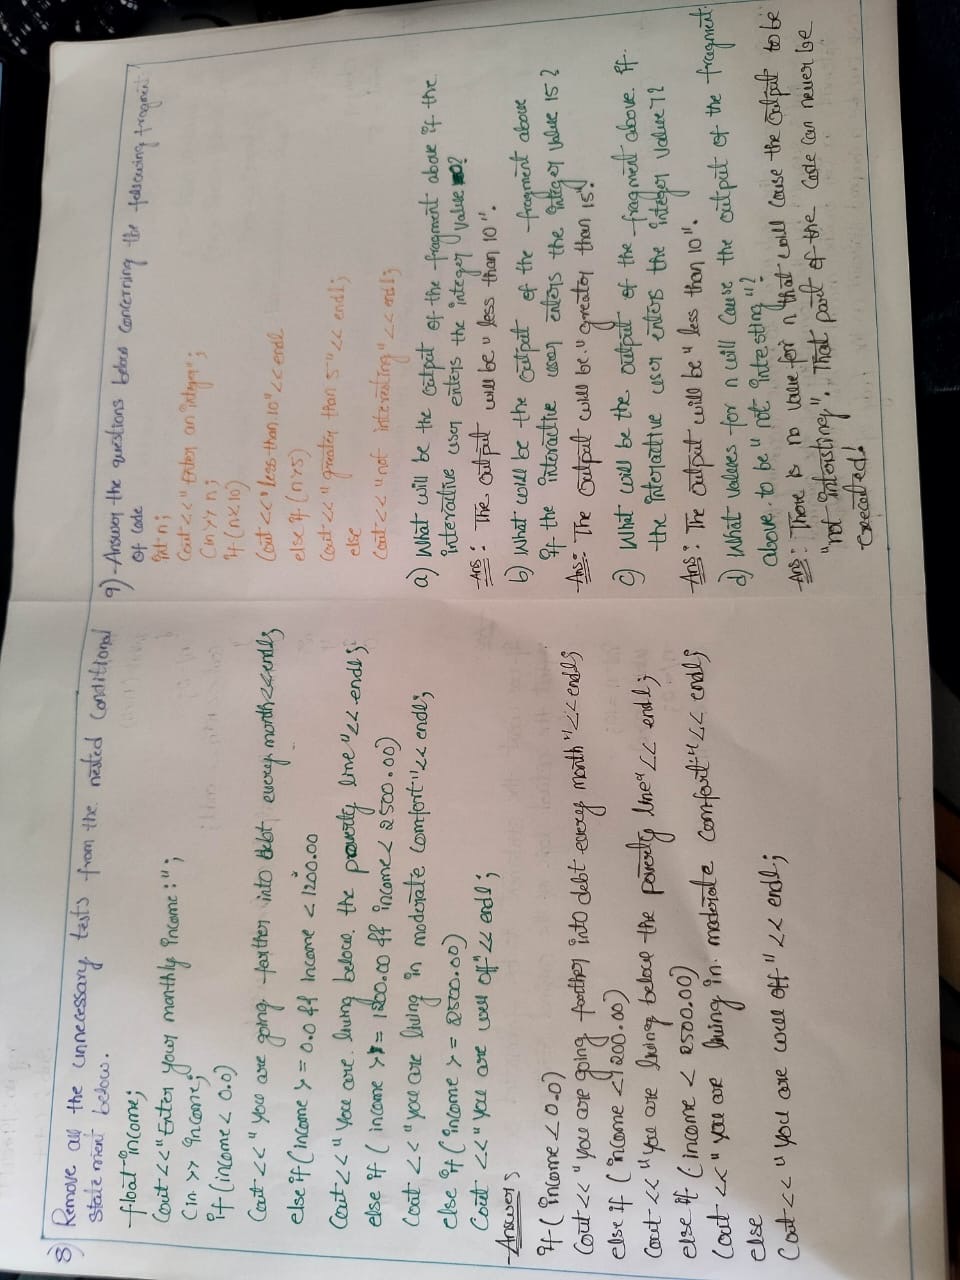 8) Remove all the unnecessary tests from the nested Conditional
Statement below.
float income;
Cout <<"Enter your monthly income:";
Cin >> income;
if (income < 0.0)
Cout << "you are going farther into debt every month<<endl;
else if (income >= 0.0 && Income < 1200.00
Cout << "you are living below the poverty line"<< endl;
else if ( income >= 1200.00 && income < 2500.00)
Cout << "you are living in moderate Comfort"<< endl;
else if ( income >= 2500.00)
Cout <<"you are well off"<< endl;
Answer
if ( income < 0.0)
Cout << "you are going farther into debt every month"<< endl;
else if ( income < 1200.00)
Cout << "you are living below the poverty line"<< endl;
else if (income < 2500.00)
Cout << "you are living in moderate Comfort"<< endl;
else
Cout << "you are well off"<< endl;
9) - Answer the questions below Concerning the following fragment
of code
int n;
Cout <<"Enter an integer";
Cin >> n;
if (n<10)
Cout <<"less than 10"<< endl
else if (n>5)
Cout <<"greater than 5"<< endl;
else
Cout <<"not interesting"<< endl;
a) What will be the output of the fragment above if the
interactive user enters the integer value 0?
Ans: The output will be "less than 10".
b) What will be the output of the fragment above
if the interactive user enters the integer value 15?
Ans: The output will be "greater than 15".
c) What will be the output of the fragment above if
the interactive user enters the integer value 7?
Ans: The output will be "less than 10".
d) What values for n will Cause the output of the fragment
above to be "not interesting"?
Ans: There is no value for n that will Cause the output to be
"not intersting". That part of the Code Can never be
executed!